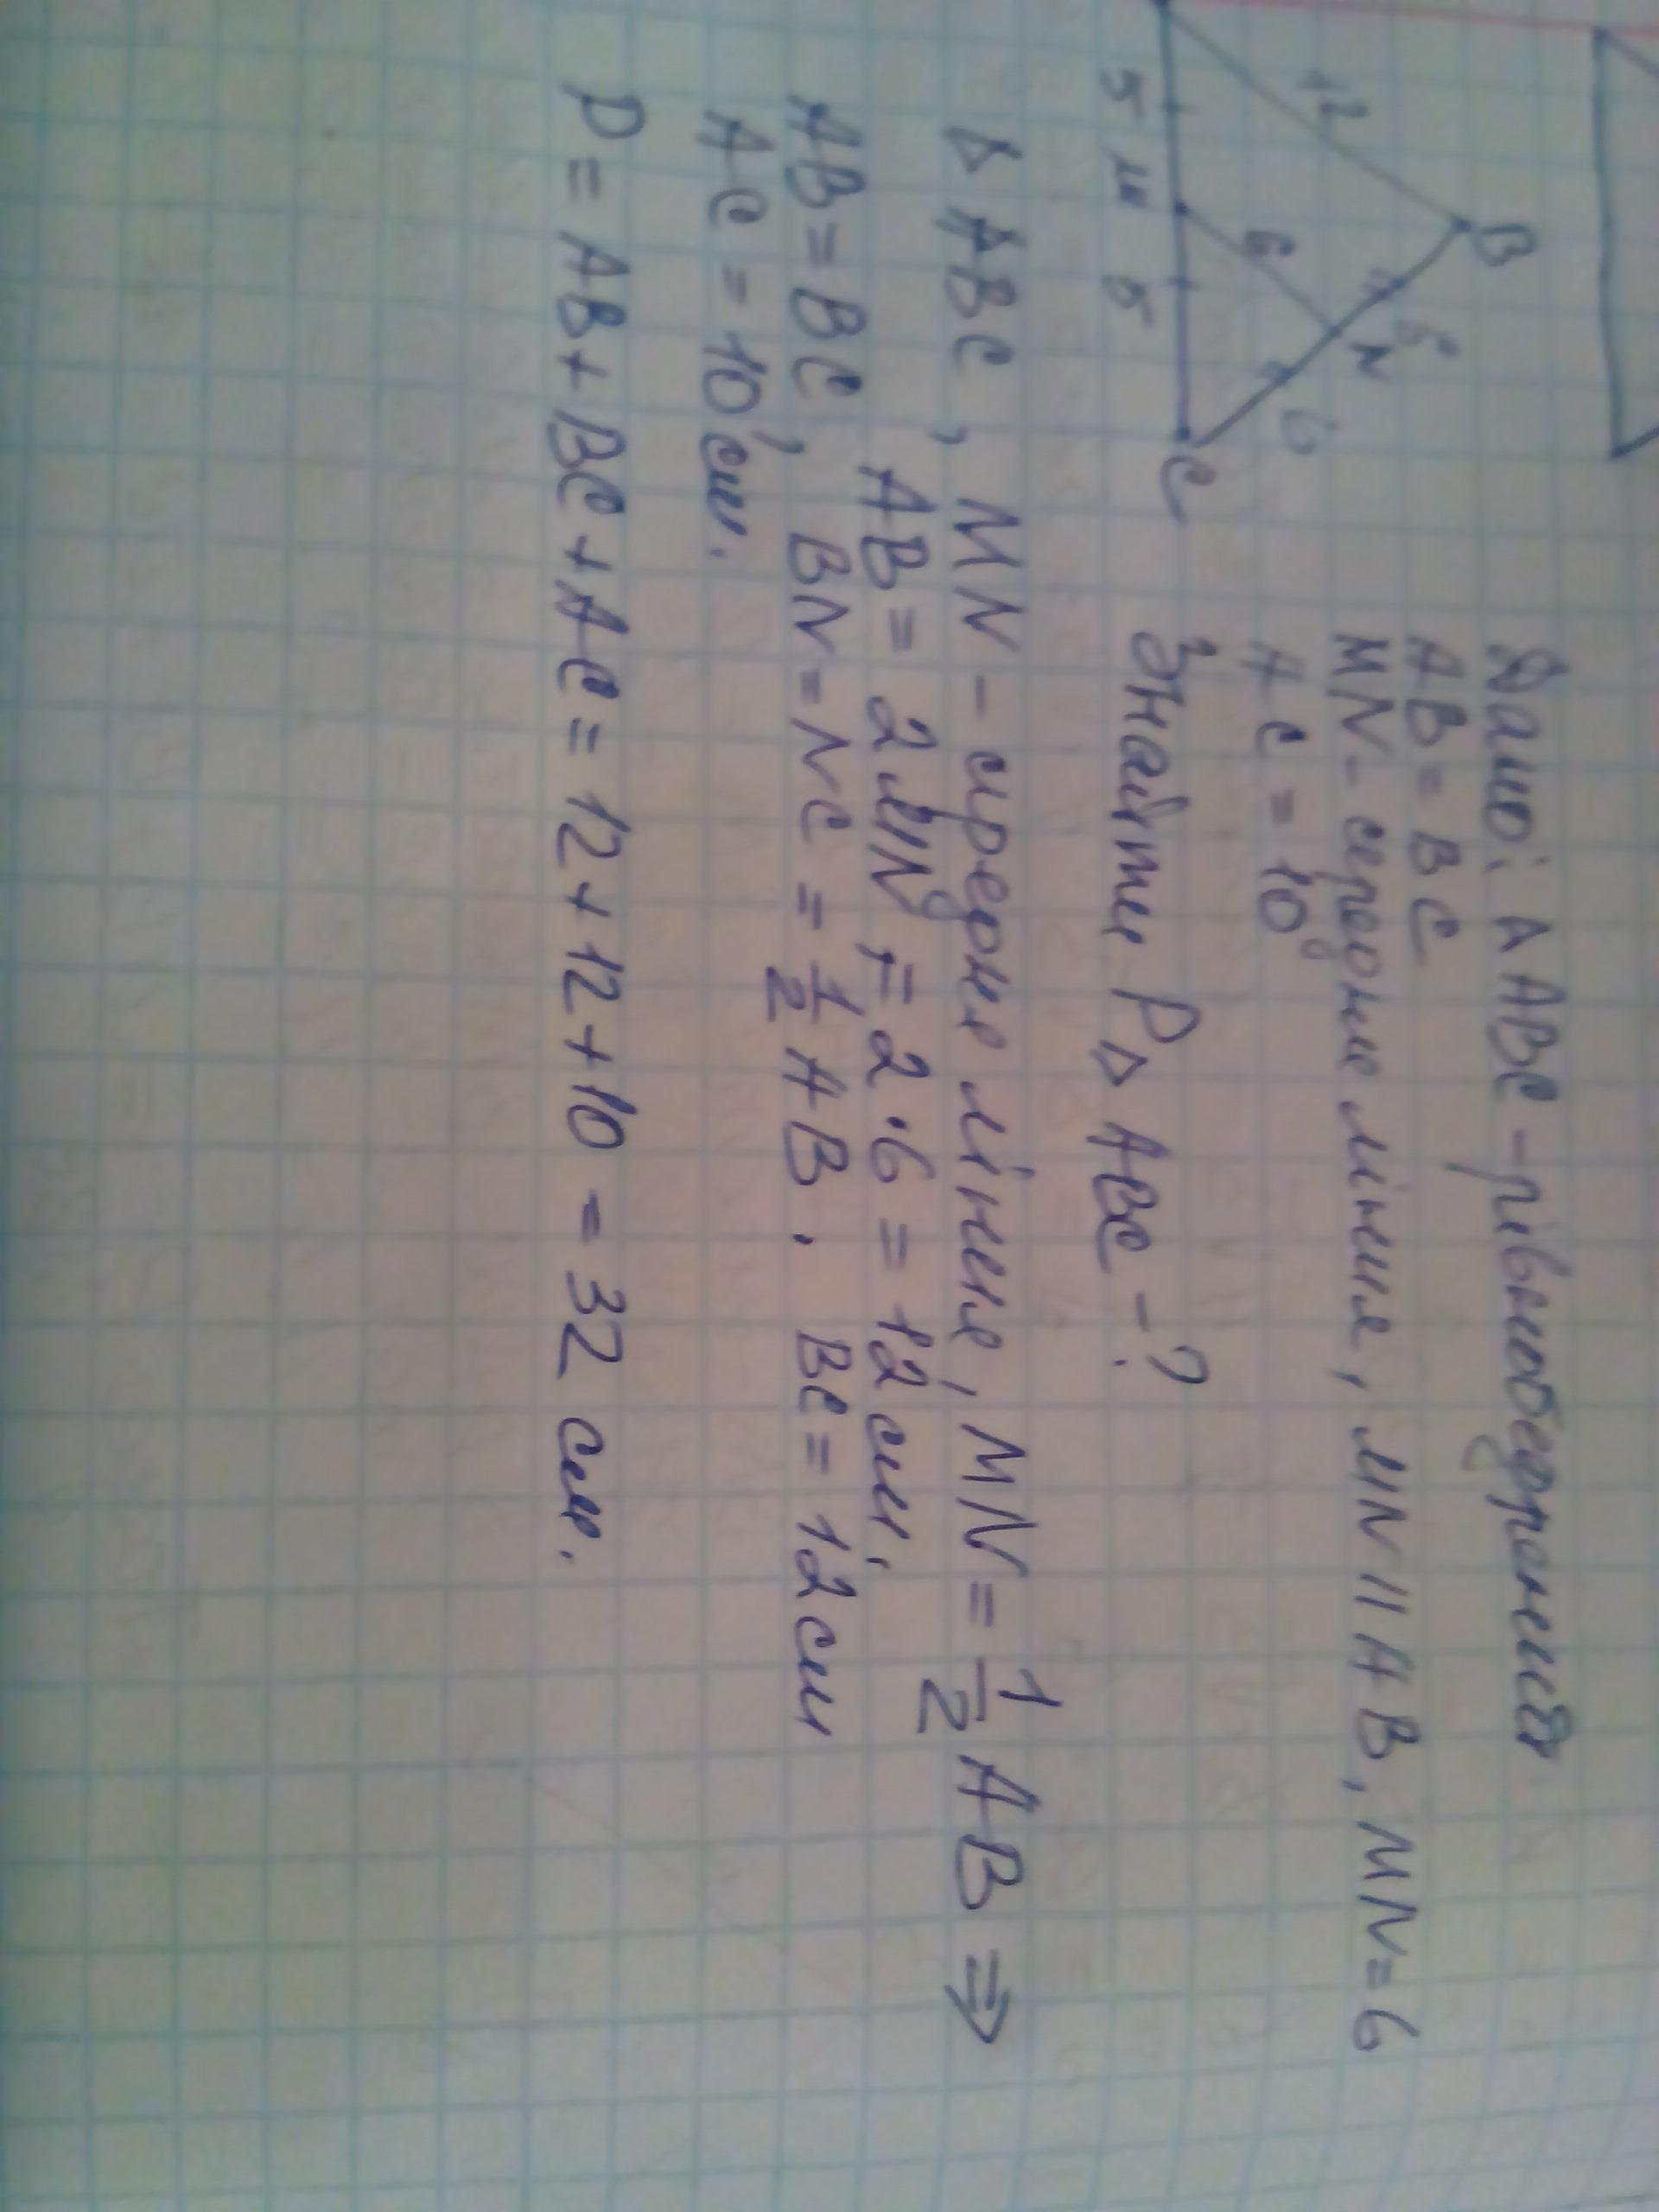 B
12
6
N
6
6
C
5 м 5
Дамо: Δ ABC - рівнобедрений
AB = BC
MN - середня лінія, MN || AB, MN = 6
AC = 10
Знайти P Δ ABC - ?
Δ ABC, MN - середня лінія, MN = 1/2 AB ⇒
AB = 2MN = 2·6 = 12 см,
AB = BC, BN = NC = 1/2 AB. BC = 12 см
AC = 10 см.
P = AB + BC + AC = 12 + 12 + 10 = 32 см.